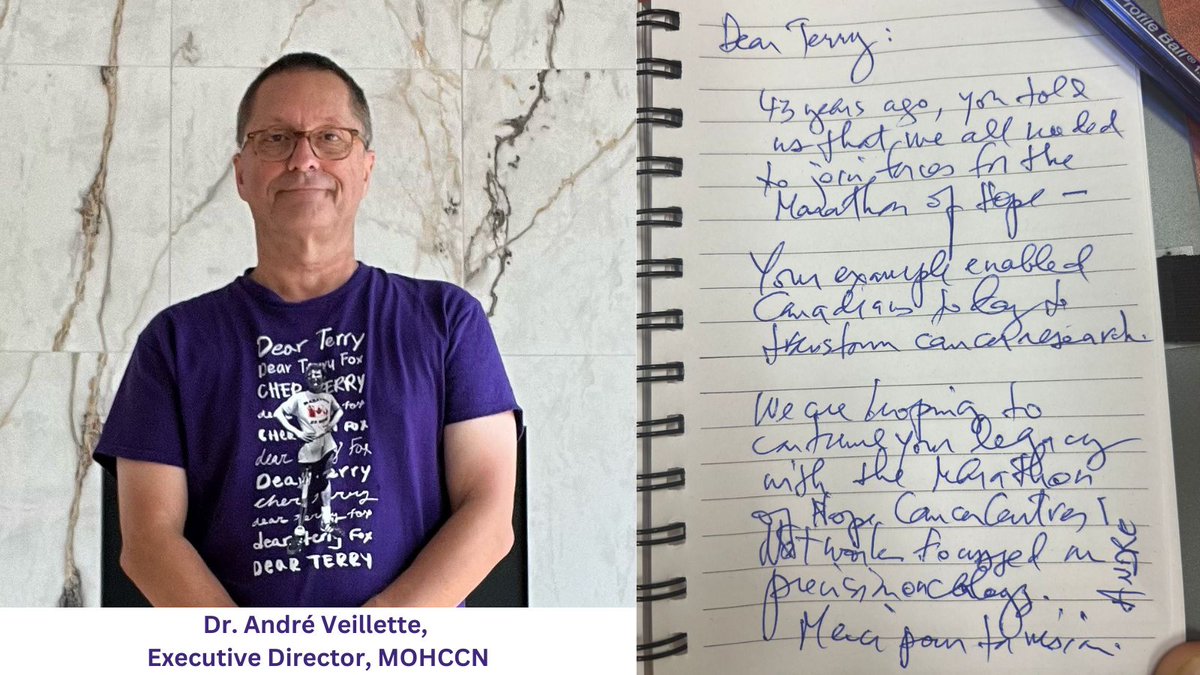 Dear Terry
Dear Terry Fox
CHER TERRY
fox
CHER FOX
dear Fox
Dear Terry
cher terry
dear terry fox
dear terry Fox
DEAR TERRY
Dr. André Veillette,
Executive Director, MOHCCN
Dear Terry:
43 years ago, you told
us that we all needed
to join forces for the
Marathon of Hope -
Your example enabled
Canadians today to
transform cancer research.
We are hoping to
continue your legacy
with the Marathon
of Hope Cancer Centres
Network focussed on
precision oncology.
Merci pour ta vision.
André
Profile Ball